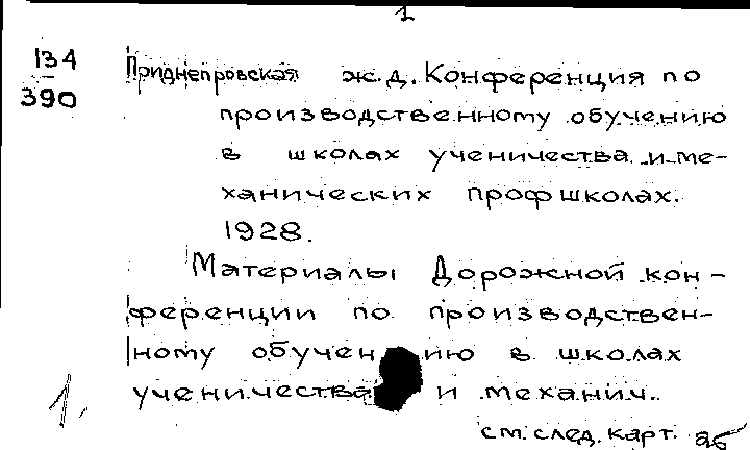 1
134
390
Приднепровская ж.д. Конференция по
производственному обучению
в школах ученичества и ме-
ханических профшколах.
1928.
Материалы Дорожной кон-
ференции по производствен-
ному обучению в школах
ученичества и механич.
1.
см. след. карт. аб